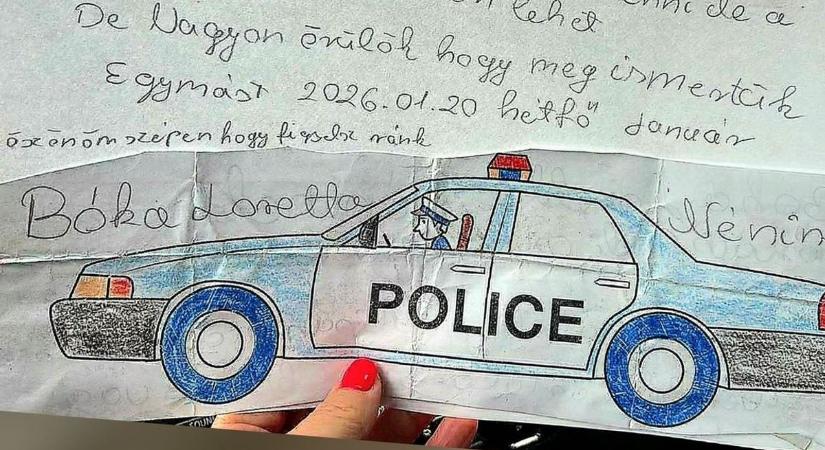 lehet
De Nagyon örülök hogy meg ismertük
Egymást 2026.01.20 hétfő Január
öszönöm szépen hogy figyelsz ránk
Bóka Loretta Nénin
POLICE